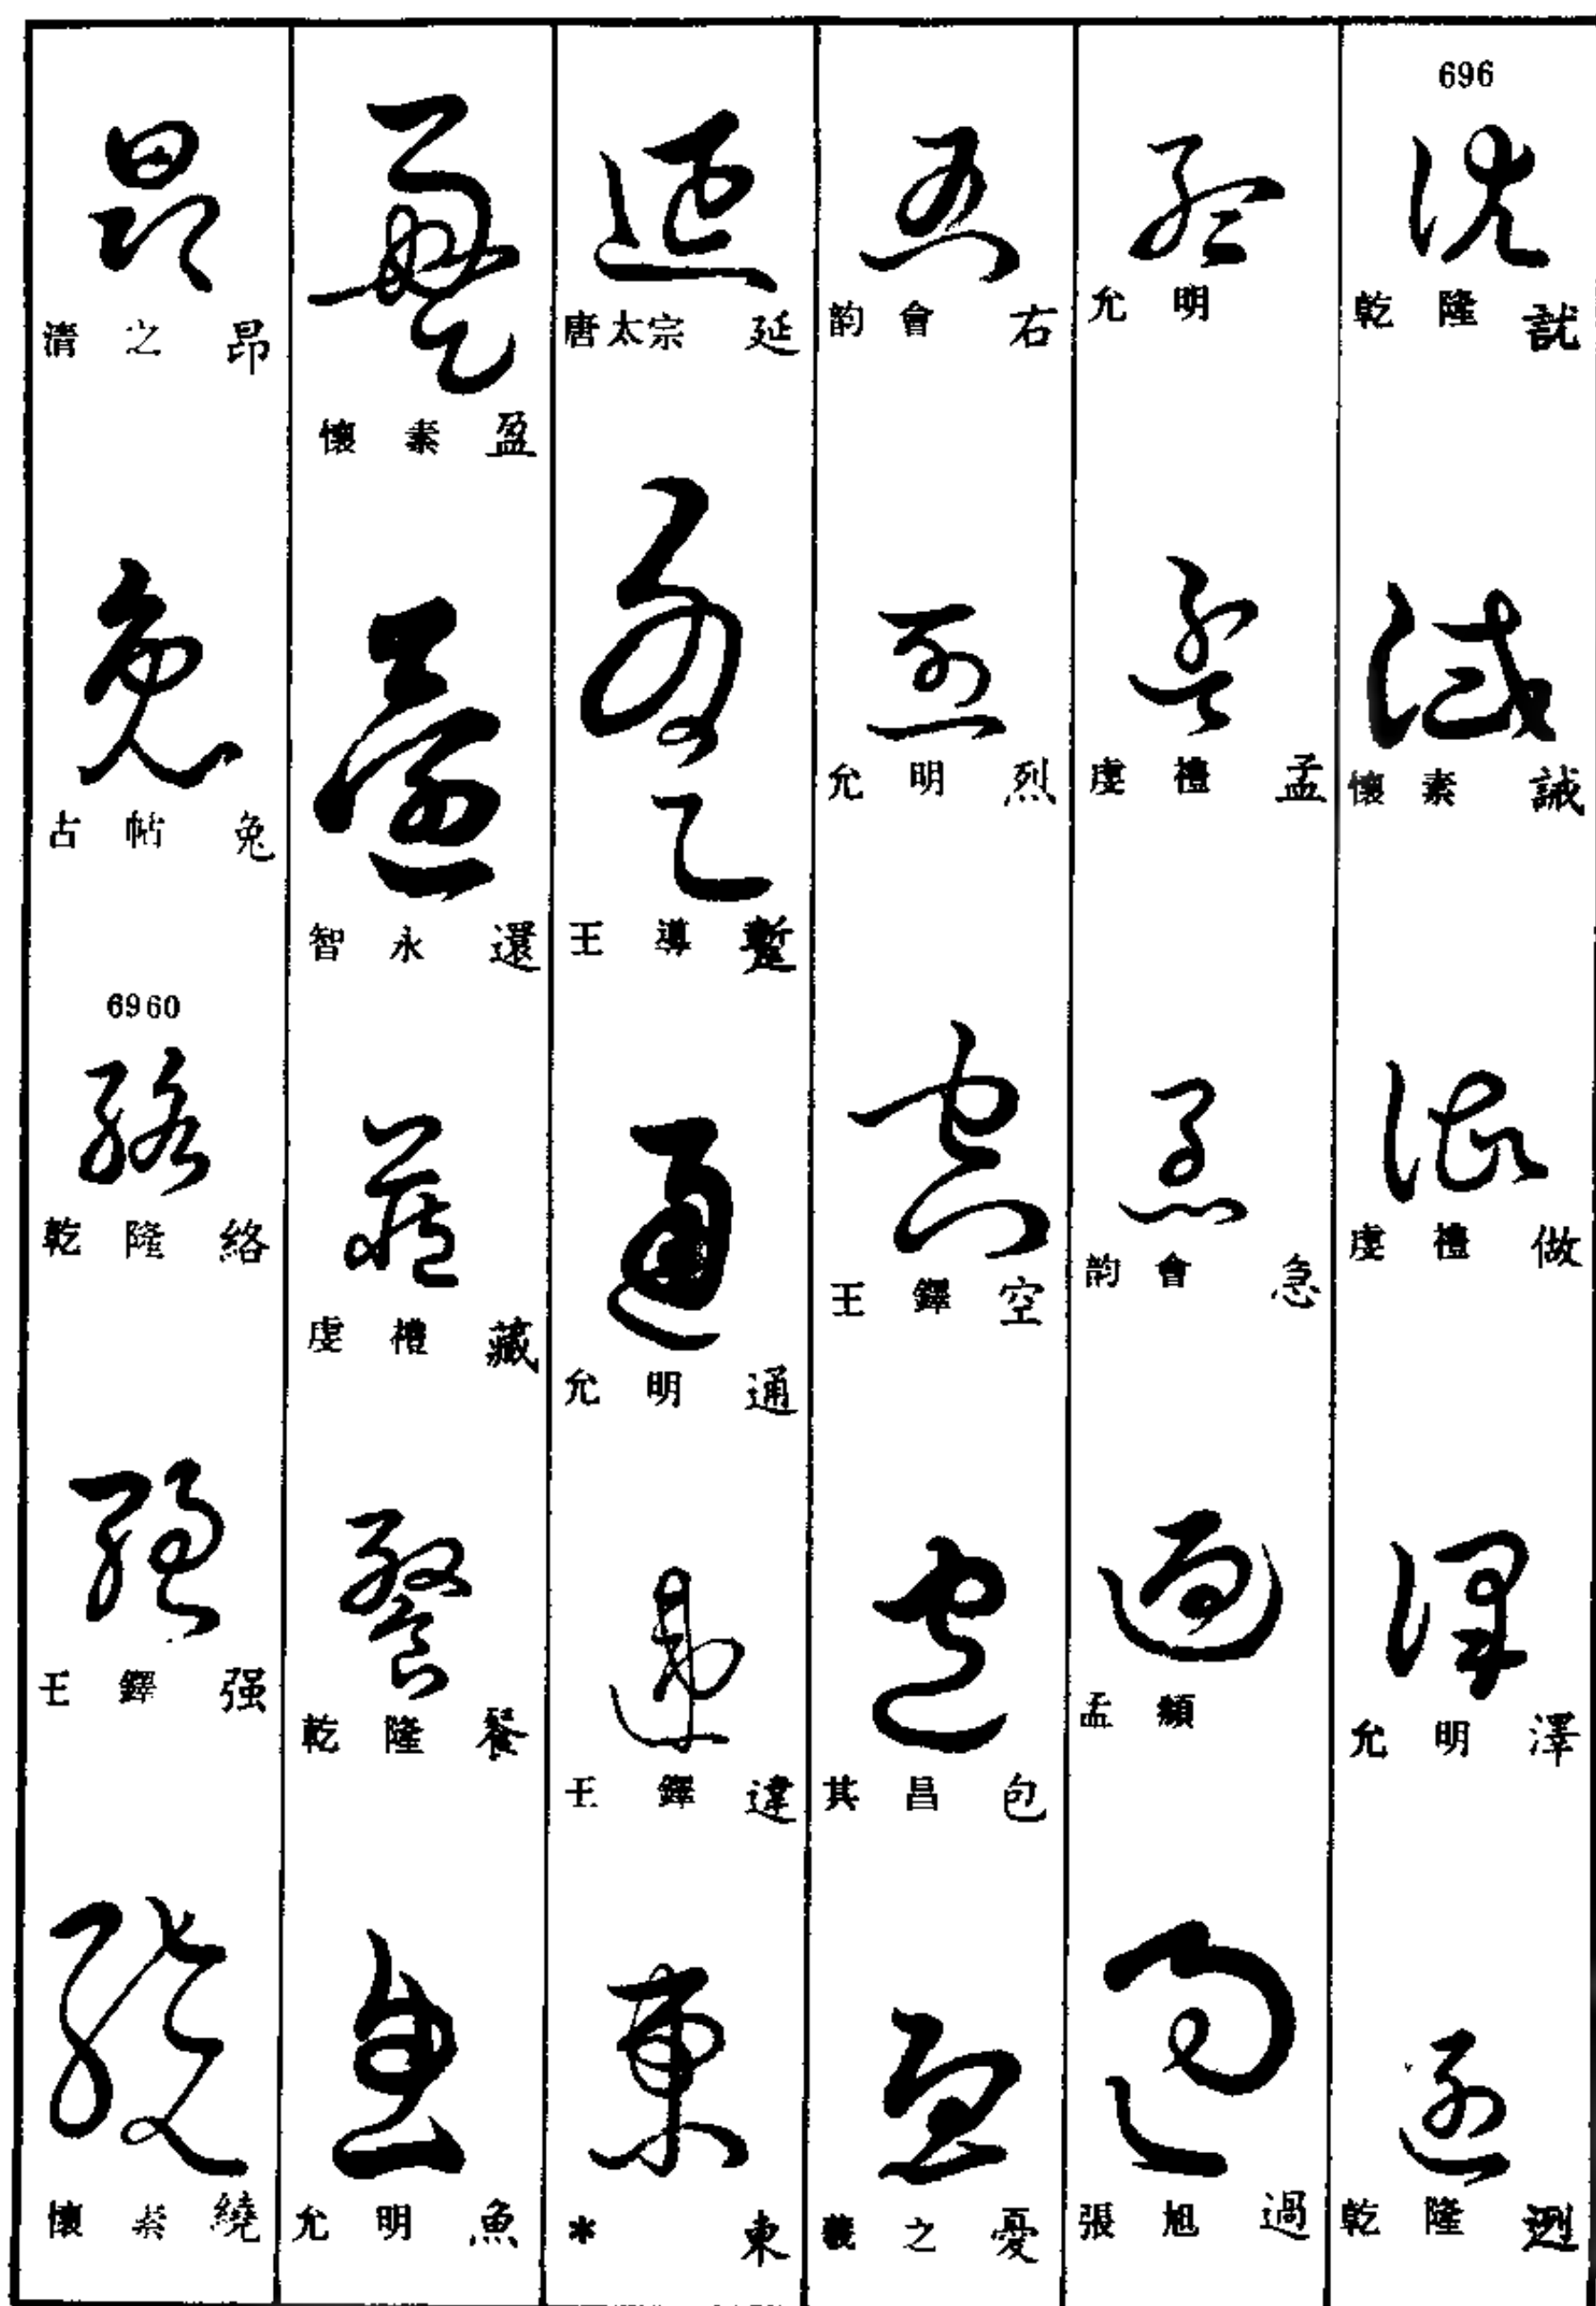 696
乾隆 試
懷素 誡
虔禮 做
允明 澤
乾隆 迾
允明
虔禮 孟
韵會 急
孟頫
張旭 過
韵會 右
允明 烈
王鐸 空
其昌 包
羲之 憂
唐太宗 延
王導 蹔
允明 通
王鐸 違
* 東
懷素 盈
智永 還
虔禮 藏
乾隆 餐
允明 魚
清之 昂
古帖 兔
6960
乾隆 絡
王鐸 强
懷素 繞